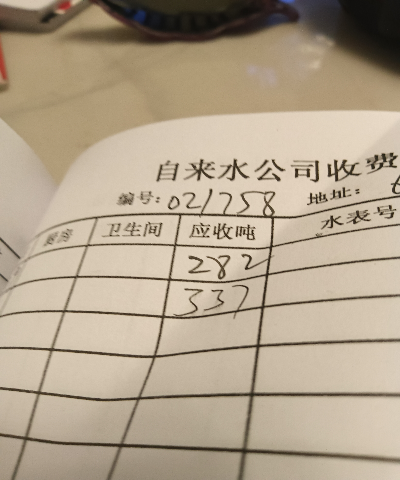 自来水公司收费
编号: 021758 地址:
厨房 卫生间 应收吨 水表号
282
337